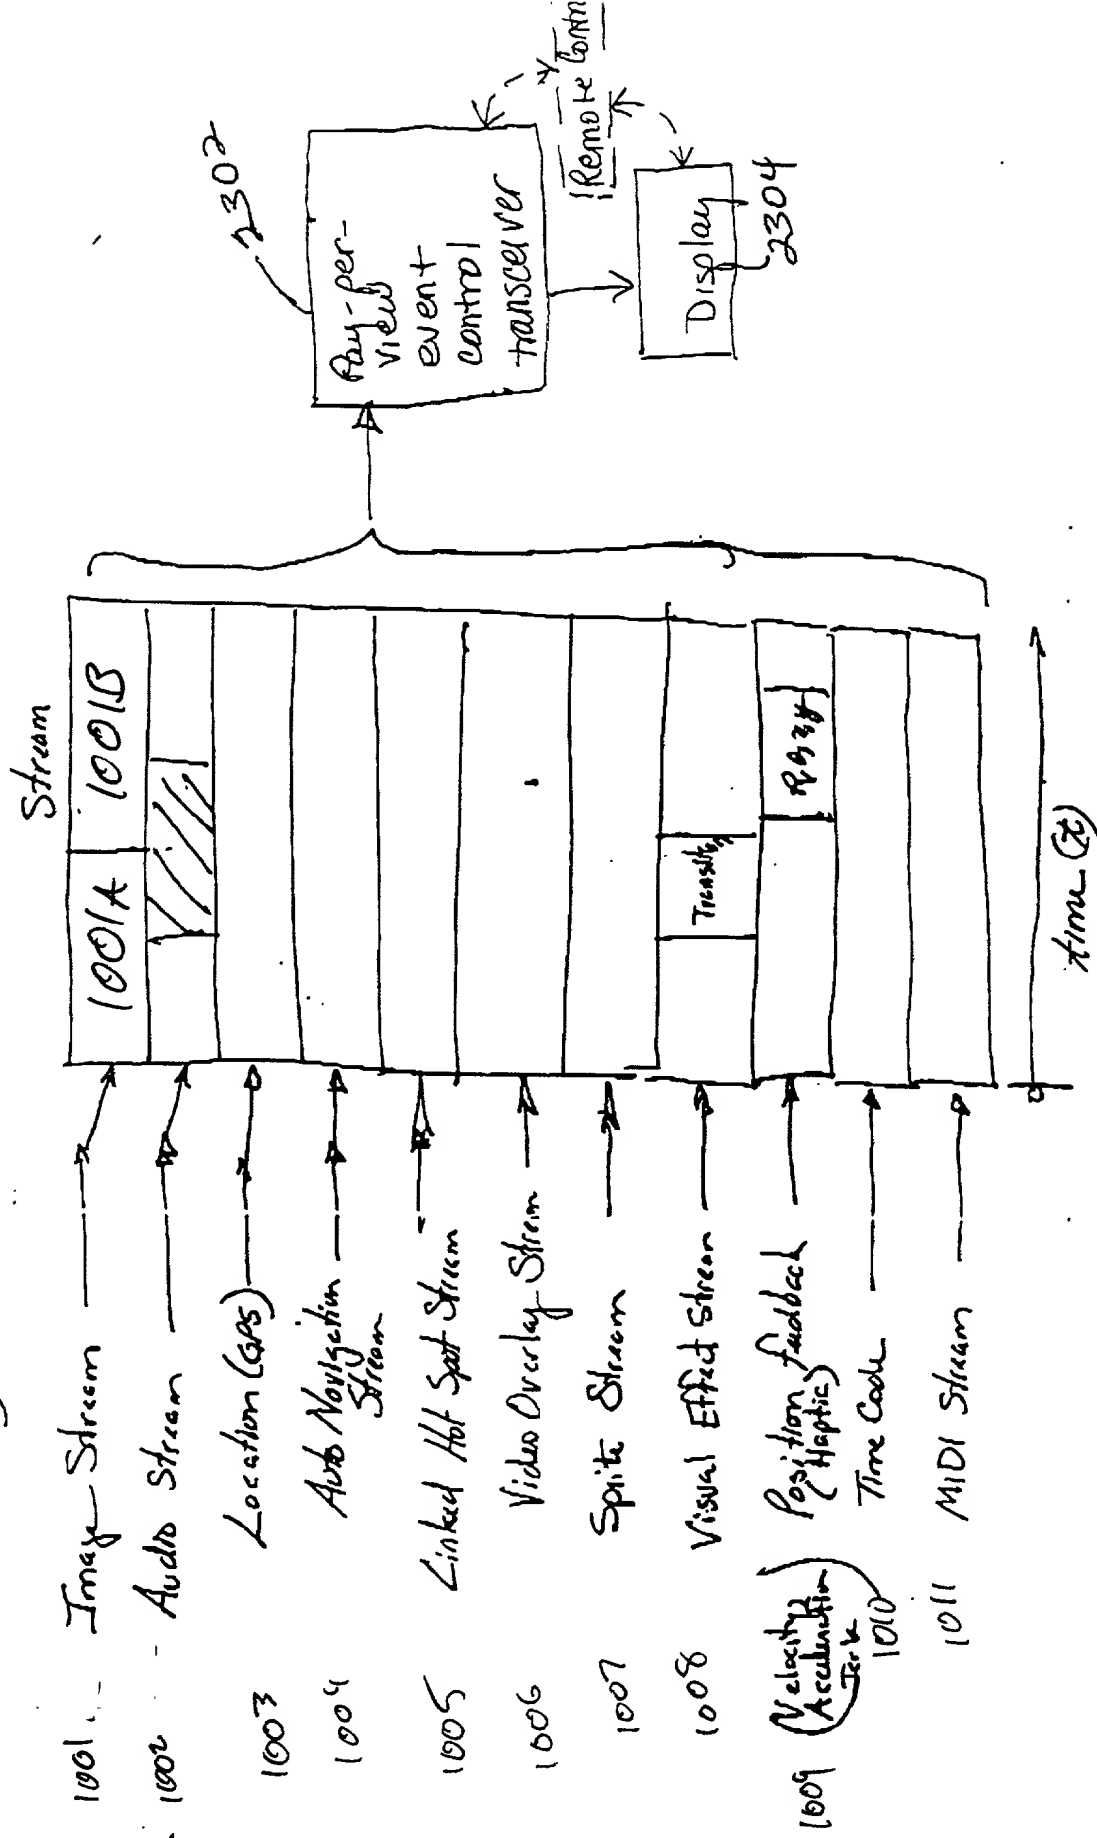 Stream
1001A 1001B
1001 Image Stream
1002 Audio Stream
1003 Location (GPS)
1004 Auto Navigation
Stream
1005 Linked Hot Spot Stream
1006 Video Overlay Stream
1007 Sprite Stream
1008 Visual Effect Stream
1009 (Velocity,
Acceleration
Jerk
Position feedback
(Haptic)
1010 Time Code
1011 MIDI Stream
time (t)
2302
Pay-per-
view
event
control
transceiver
Remote Contr
Display
2304